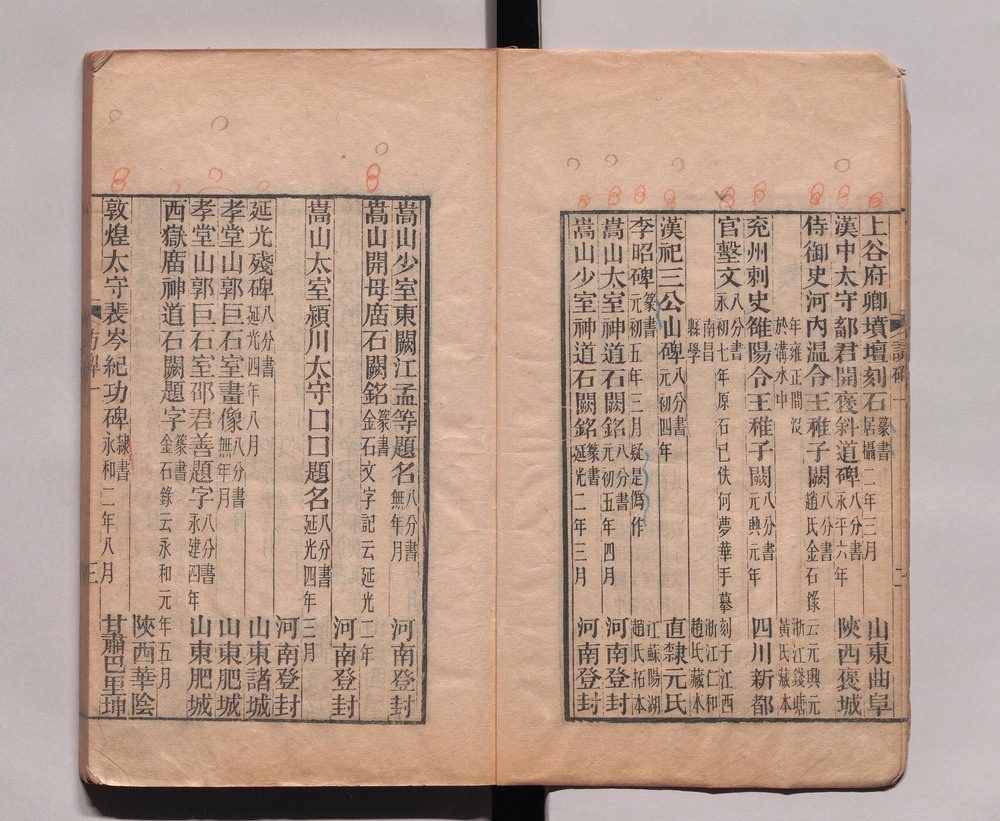 上谷府卿墳壇刻石 篆書 居攝二年三月 山東曲阜
漢中太守鄐君開褒斜道碑 八分書 永平六年 陝西褒城
侍御史河内温令王稚子闕 八分書 趙氏金石錄云元興元
年雍正間沒於溝水中 浙江錢塘黃氏藏本
兖州刺史雒陽令王稚子闕 八分書 元興元年 四川新都
官墼文 八分書 永初七年原石已佚何夢華手摹刻于江西
南昌縣學 浙江仁和趙氏藏本
漢祀三公山碑 八分書 元初四年 直隸元氏
李昭碑 篆書 元初五年三月疑是僞作 江蘇陽湖趙氏拓本
嵩山太室神道石闕銘 八分書 元初五年四月 河南登封
嵩山少室神道石闕銘 篆書 延光二年三月 河南登封
嵩山少室東闕江孟等題名 八分書 無年月 河南登封
嵩山開母廟石闕銘 篆書 金石文字記云延光二年
河南登封
嵩山太室潁川太守口口題名 八分書 延光四年三月
河南登封
延光殘碑 八分書 延光四年八月 山東諸城
孝堂山郭巨石室畫像 八分書 無年月 山東肥城
孝堂山郭巨石室邵君善題字 八分書 永建四年 山東肥城
西嶽廟神道石闕題字 篆書 金石錄云永和元年五月
陝西華陰
敦煌太守裴岑紀功碑 隸書 永和二年八月 甘肅巴里坤
訪碑一 三